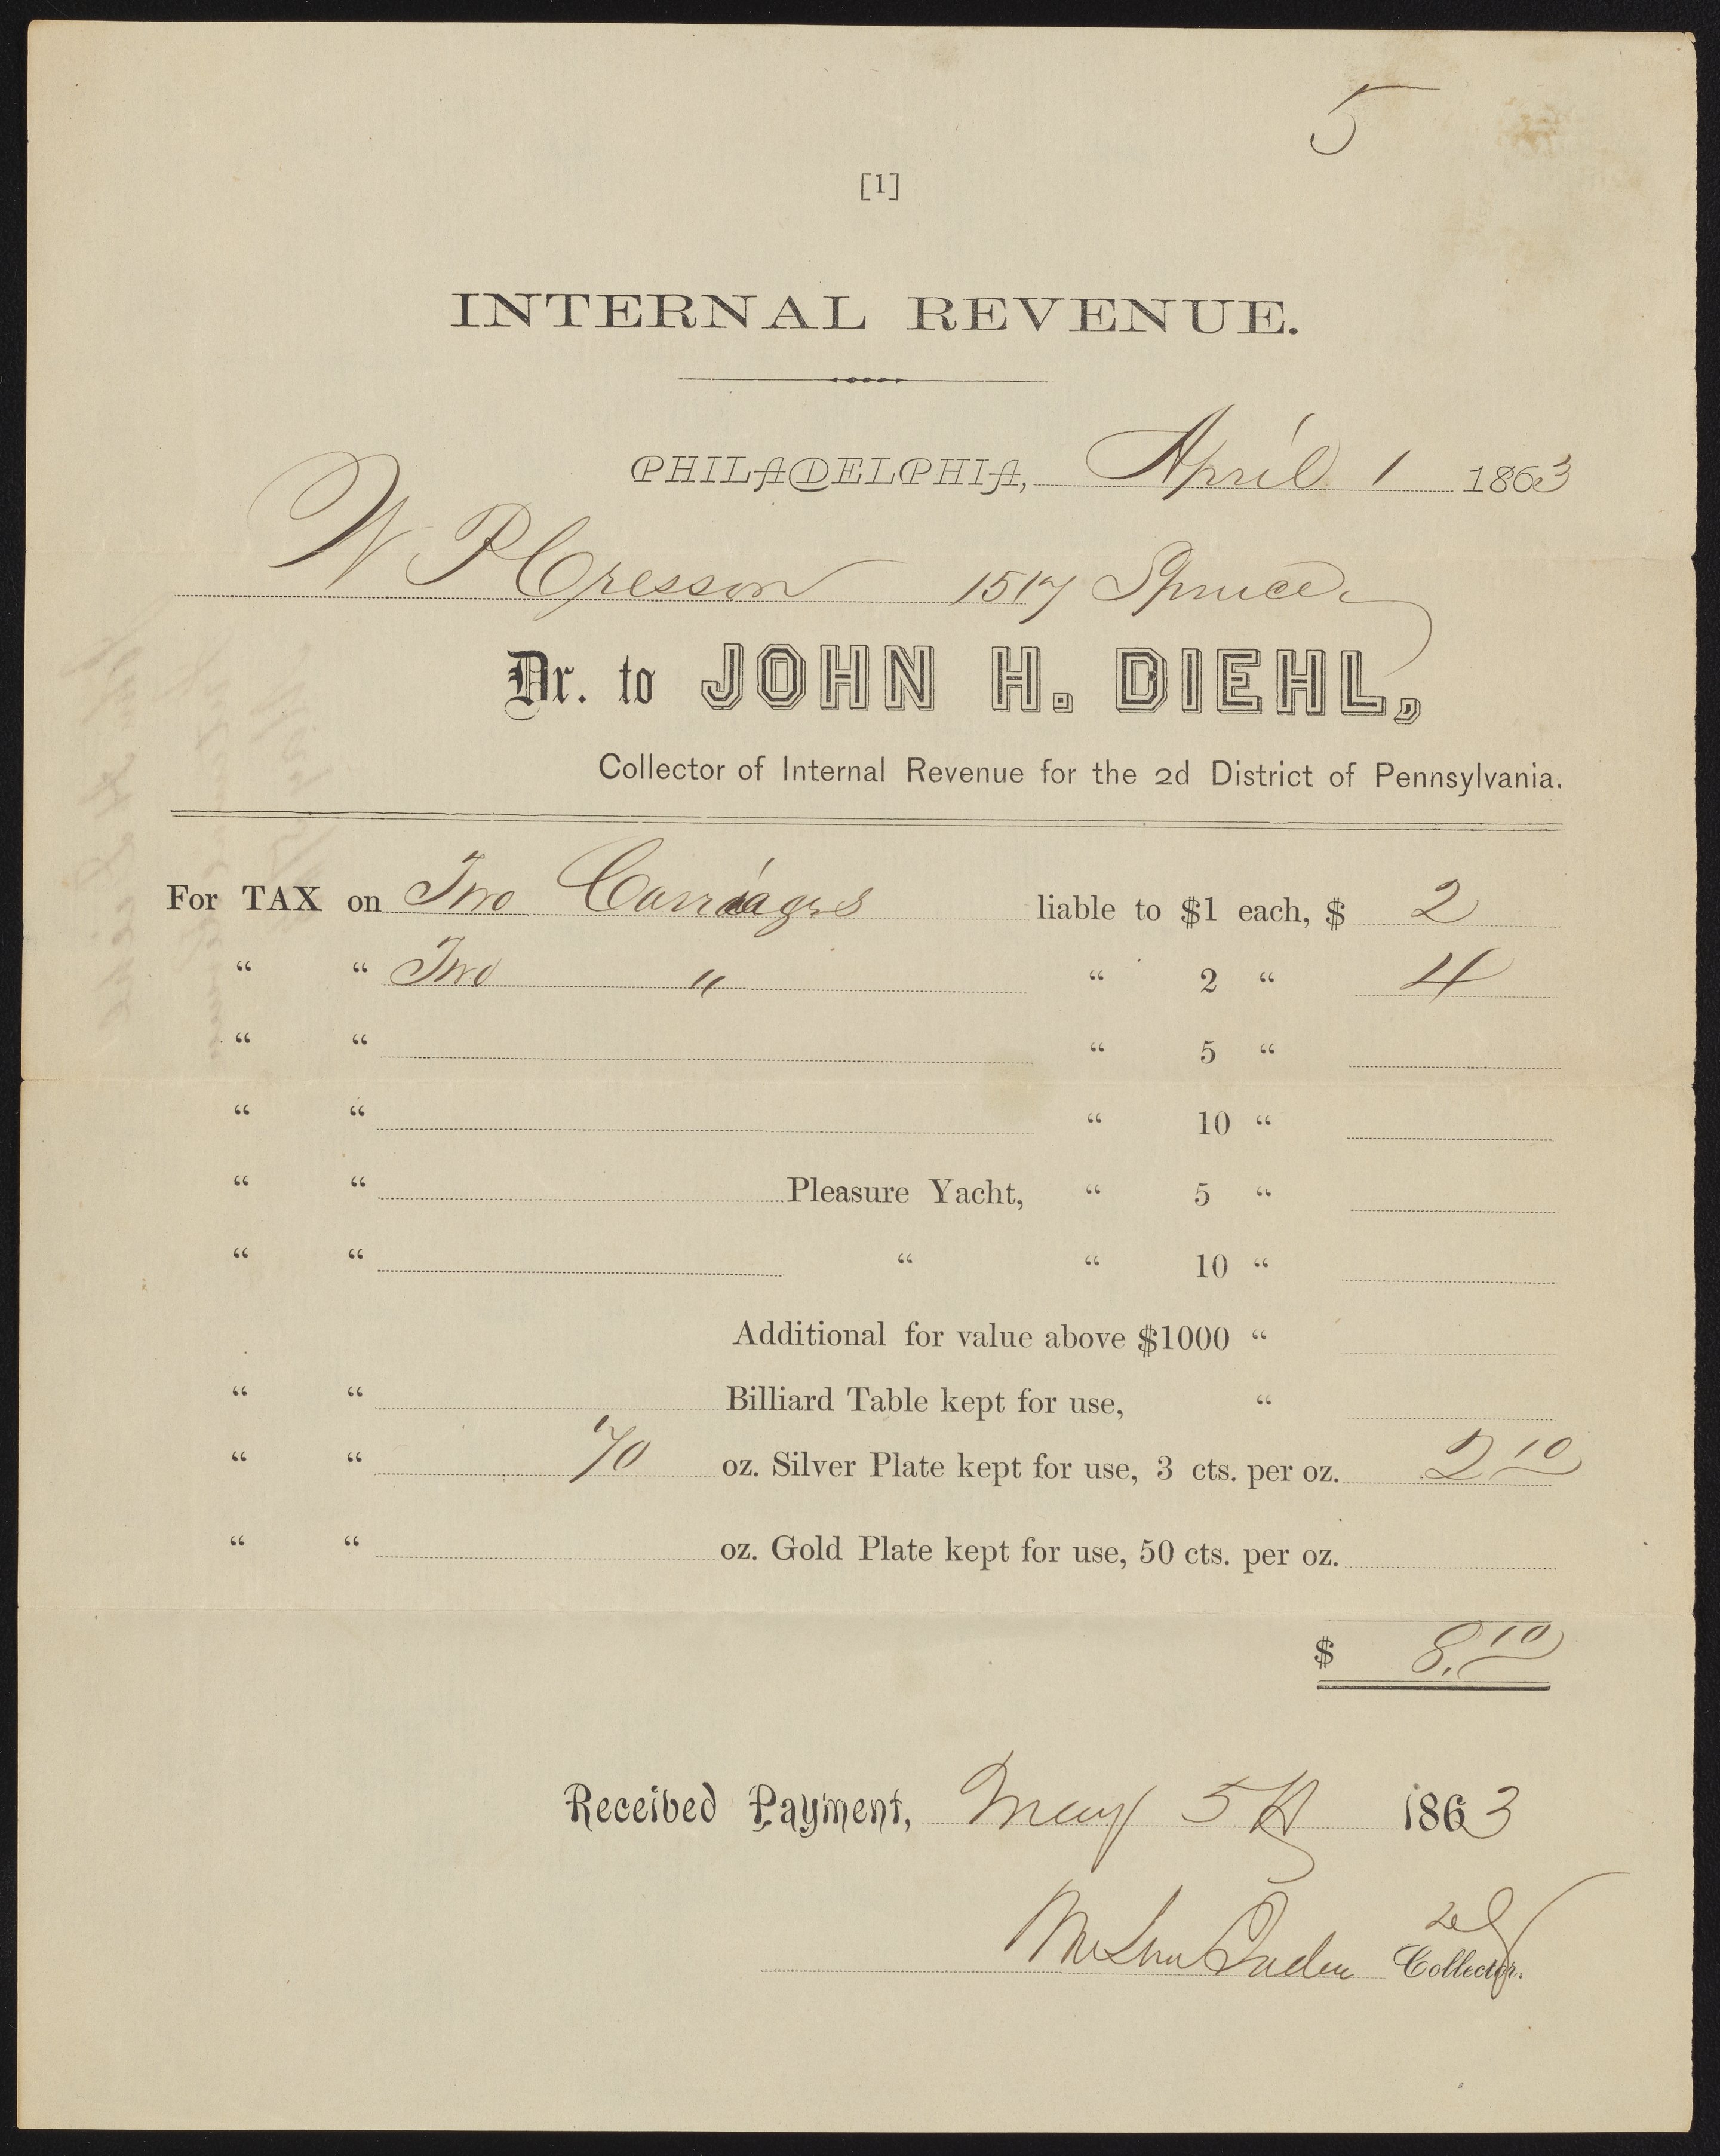 5
[1]
INTERNAL REVENUE.
PHILADELPHIA, April 1 1863
W P Cresson 1517 Spruce
Dr. to JOHN H. DIEHL,
Collector of Internal Revenue for the 2d District of Pennsylvania.
For TAX on Two Carriages liable to $1 each, $ 2
“ “ Two " “ 2 “ 4
“ “ “ 5 “
“ “ “ 10 “
“ “ Pleasure Yacht, “ 5 “
“ “ “ “ 10 “
Additional for value above $1000 “
“ “ Billiard Table kept for use, “
“ “ 70 oz. Silver Plate kept for use, 3 cts. per oz. 2 10
“ “ oz. Gold Plate kept for use, 50 cts. per oz.
$ 8.10
Received Payment, May 5th 1863
Collector.